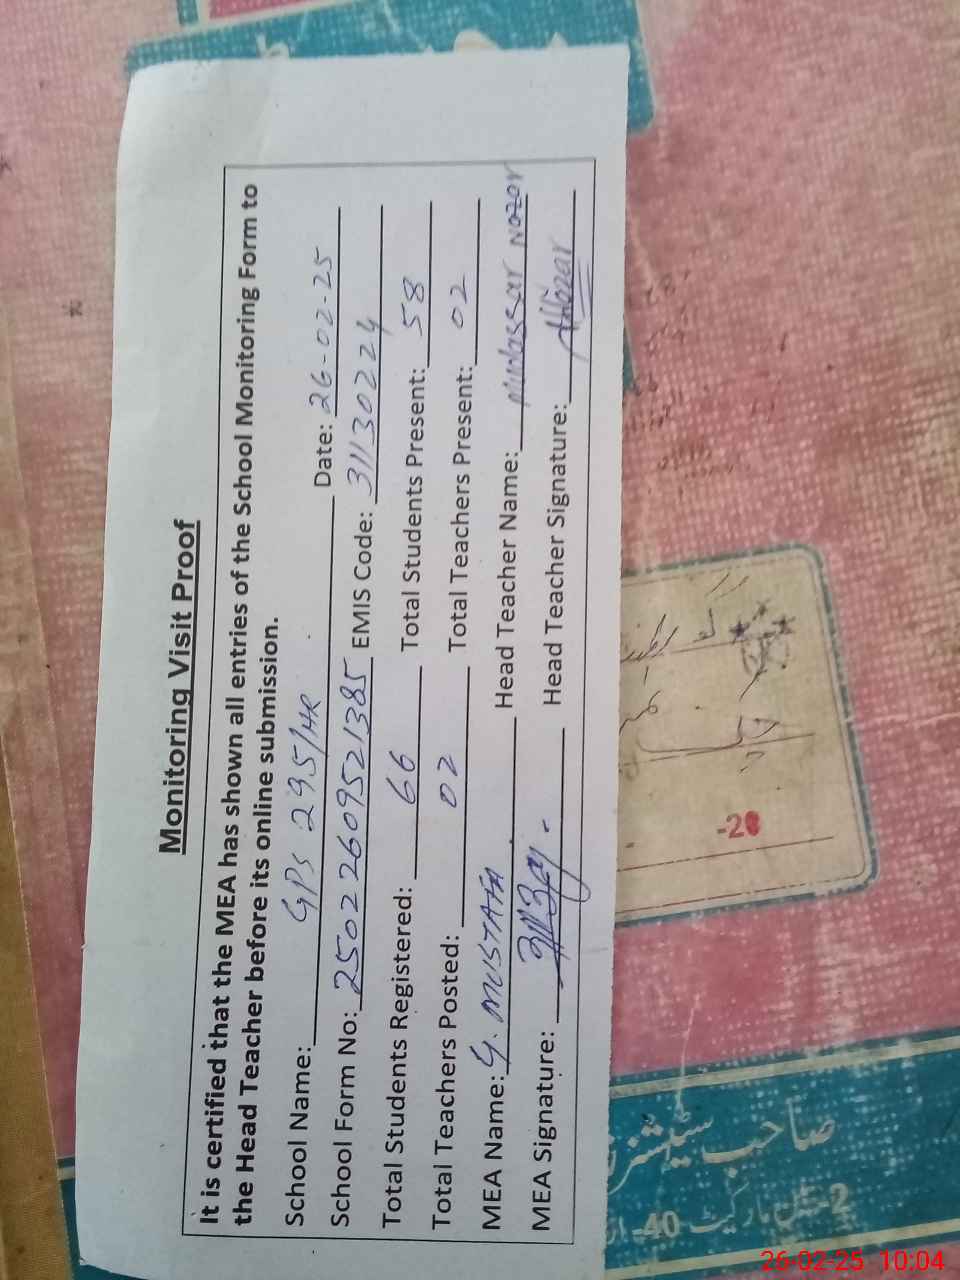 Monitoring Visit Proof
It is certified that the MEA has shown all entries of the School Monitoring Form to
the Head Teacher before its online submission.
School Name: GPS 295/HR Date: 26-02-25
School Form No: 25022609521385 EMIS Code: 31130224
Total Students Registered: 66 Total Students Present: 58
Total Teachers Posted: 02 Total Teachers Present: 02
MEA Name: G. MUSTAFA Head Teacher Name: Mudassar Nazar
MEA Signature: Head Teacher Signature:
-20
صاحب سٹیشنرز
26-02-25 10:04